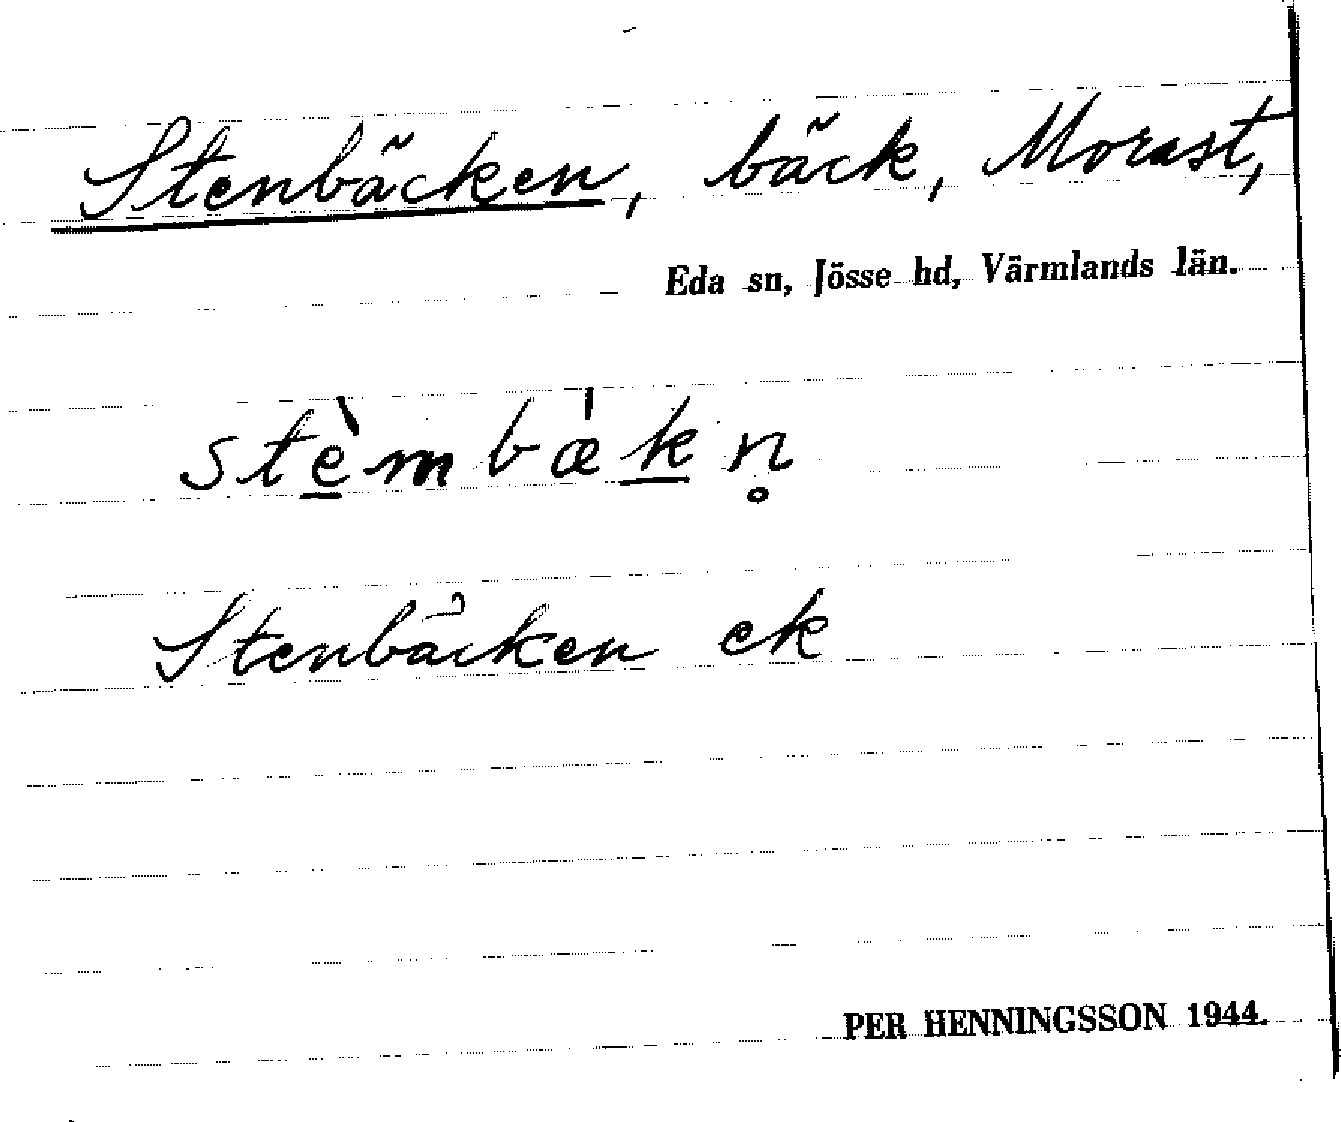 Stenbäcken, bäck, Morast,
Eda sn, Jösse hd, Värmlands län.
stèmbækn̥
Stenbäcken ek
PER HENNINGSSON 1944.